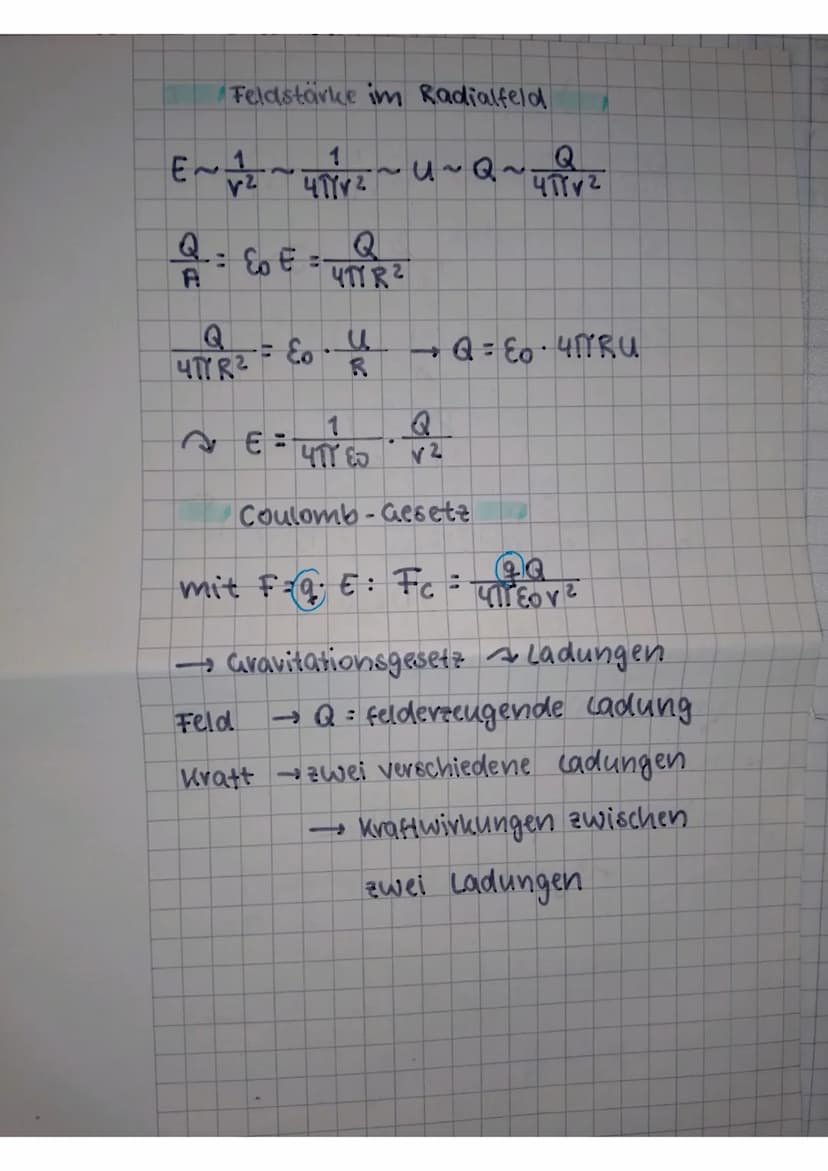 Feldstärke im Radialfeld
E ~ 1/r² ~ 1/4πr² ~ U ~ Q ~ Q/4πr²
Q/A = ε₀ E = Q/4πR²
Q/4πR² = ε₀ · U/R → Q = ε₀ · 4πRU
↝ E = 1/4πε₀ · Q/r²
Coulomb-Gesetz
mit F = q · E : F_C = qQ/4πε₀r²
→ Gravitationsgesetz ↝ Ladungen
Feld → Q = felderzeugende Ladung
Kraft → zwei verschiedene Ladungen
→ Kraftwirkungen zwischen
zwei Ladungen